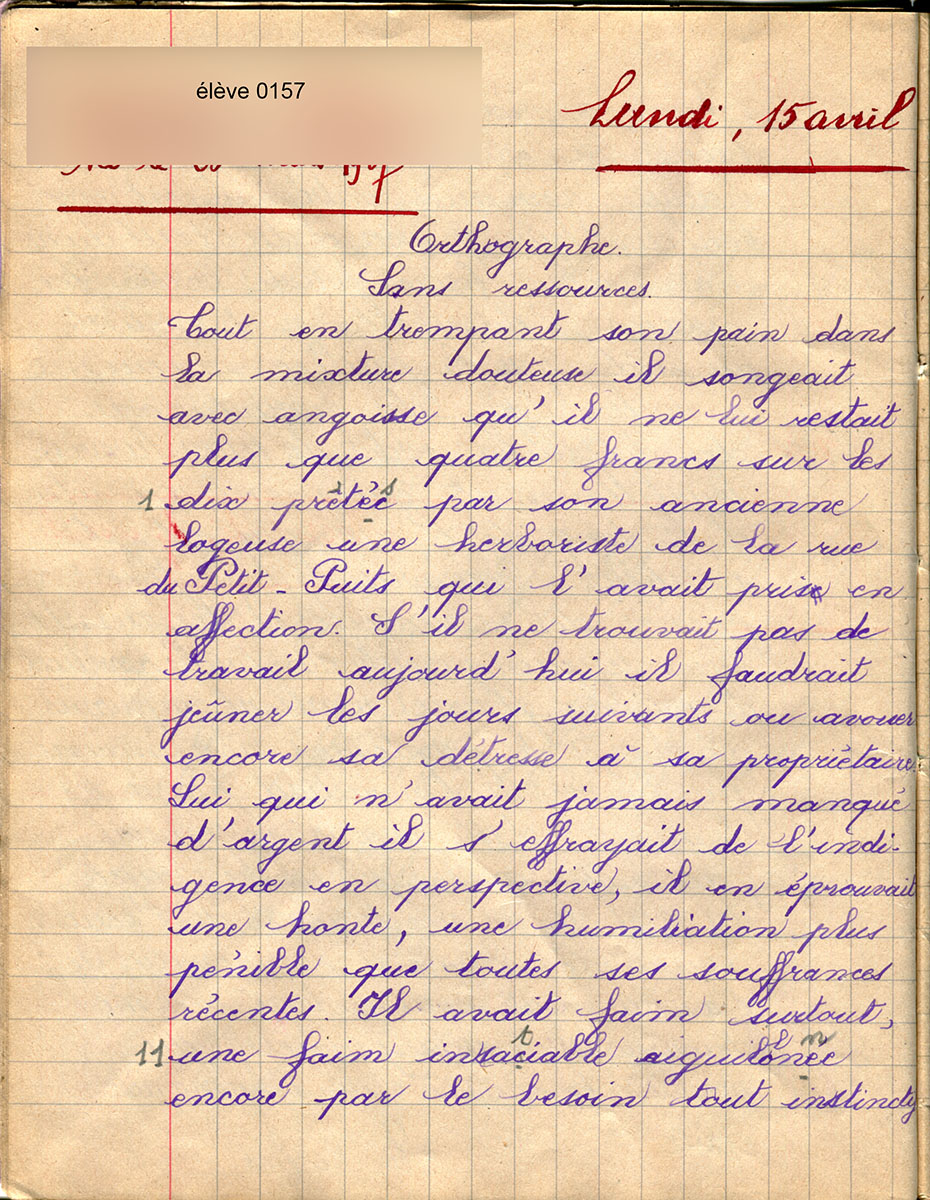 élève 0157
Lundi, 15 avril
Orthographe.
Sans ressources.
Tout en trempant son pain dans
la mixture douteuse il songeait
avec angoisse qu'il ne lui restait
plus que quatre francs sur les
1 dix prêtés par son ancienne
logeuse une herboriste de la rue
du Petit-Puits qui l'avait pris en
affection. S'il ne trouvait pas de
travail aujourd'hui il faudrait
jeûner les jours suivants ou avouer
encore sa détresse à sa propriétaire.
Lui qui n'avait jamais manqué
d'argent il s'effrayait de l'indi-
gence en perspective, il en éprouvait
une honte, une humiliation plus
pénible que toutes ses souffrances
récentes. Il avait faim surtout,
t l n
11 une faim insaciable aiguilonée
encore par le besoin tout instincty